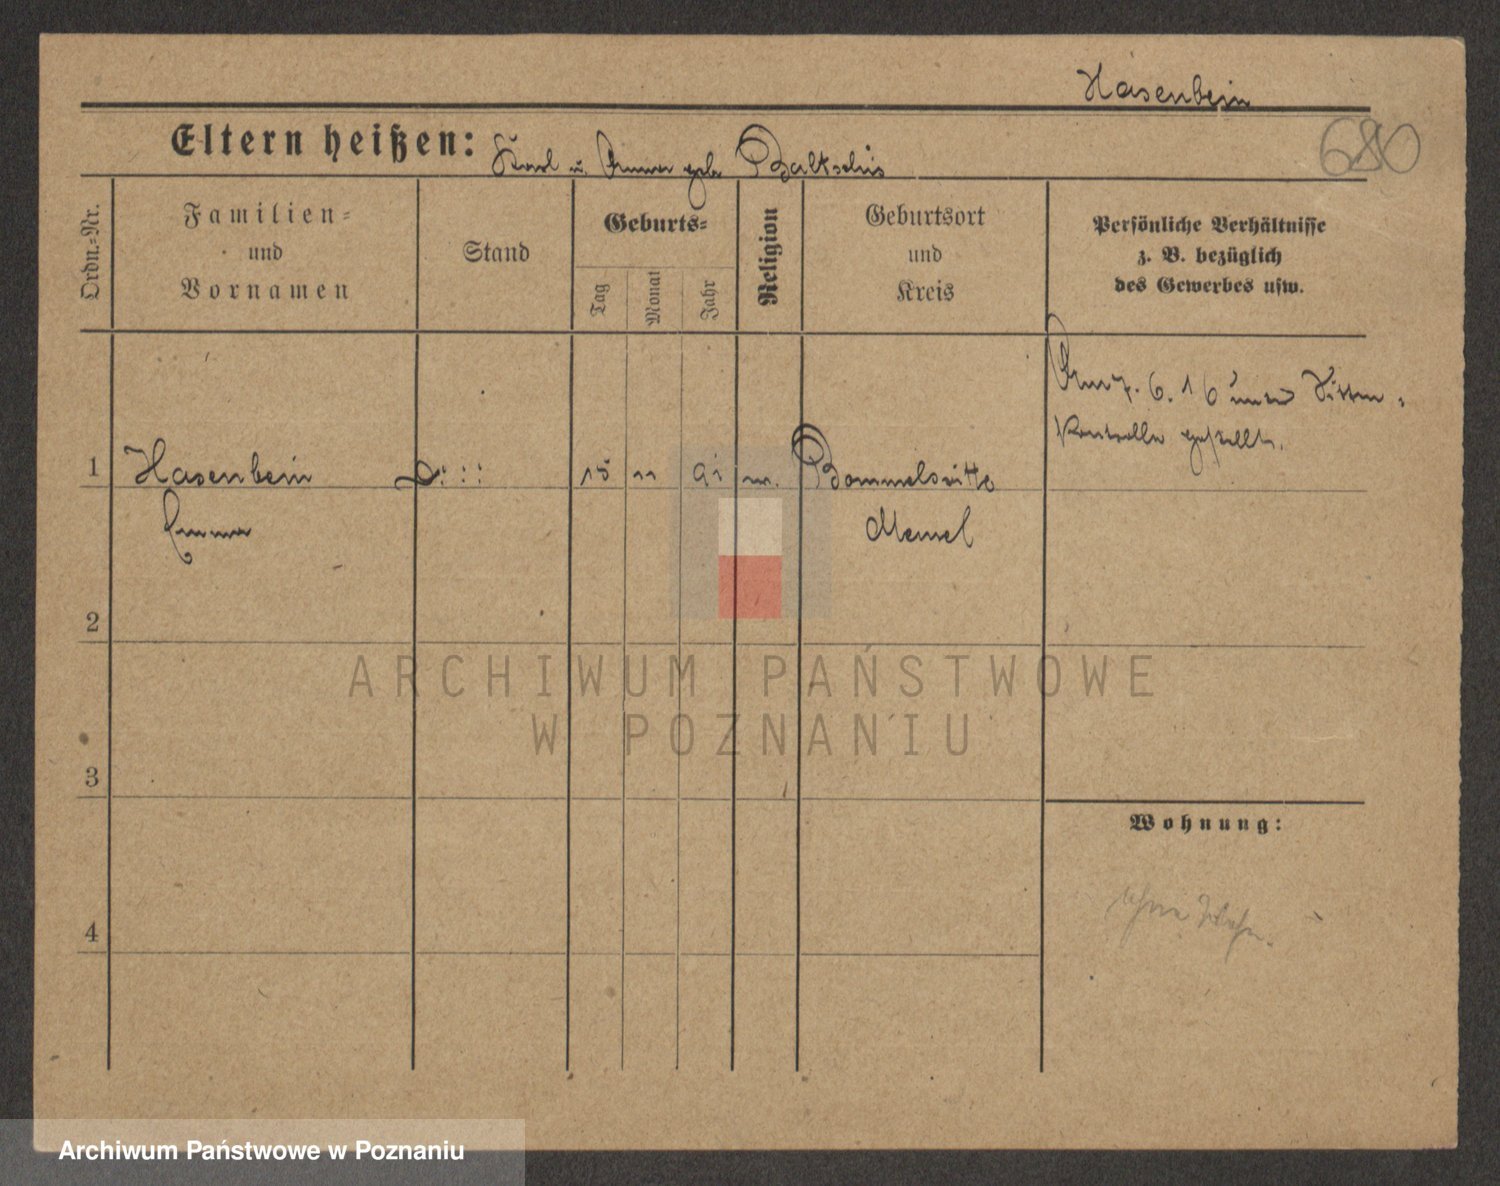 Hasenbein
680
Eltern heißen: Karl u. Anna geb. Baltschis
Ordn.=Nr.
Familien=
und
Vornamen
Stand
Geburts=
Tag
Monat
Jahr
Religion
Geburtsort
und
Kreis
Persönliche Verhältnisse
z. B. bezüglich
des Gewerbes usw.
Am 7. 6. 16 unter Sitten-
kontrolle gestellt.
1 Hasenbein 15 11 91 Bommelsvitte
Emma Memel
2
3
4
Wohnung:
ohne Wohn.
ARCHIWUM PAŃSTWOWE
W POZNANIU
Archiwum Państwowe w Poznaniu